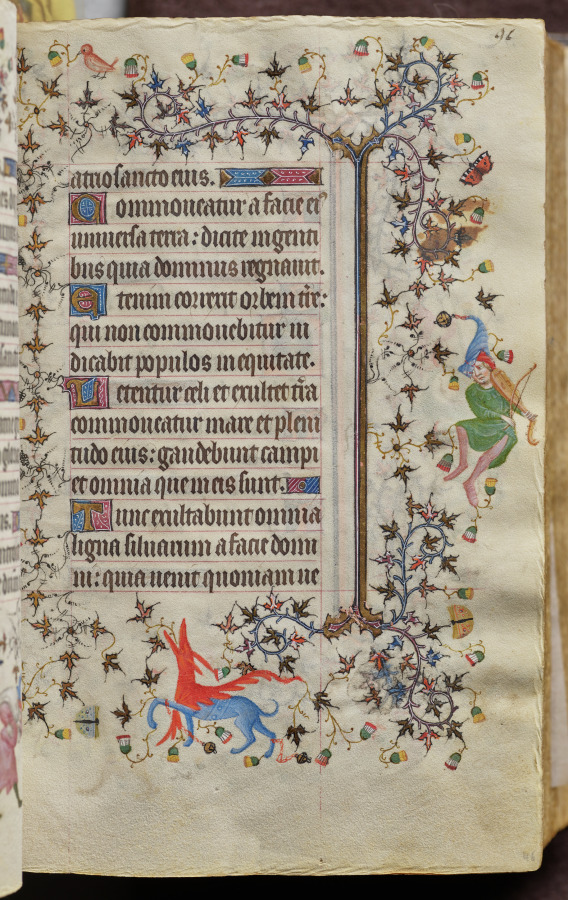 96
atrio sancto eius.
Commoveatur a facie ei⁹
universa terra: dicite in genti
bus quia dominus regnavit.
Etenim correxit orbem t̄re:
qui non commovebitur iu
dicabit populos in equitate.
Letentur celi et exultet t̄ra
commoveatur mare et pleni
tudo eius: gaudebunt campi
et omnia que in eis sunt.
Tunc exultabunt omnia
ligna silvarum a facie domi
ni: quia venit quoniam ve